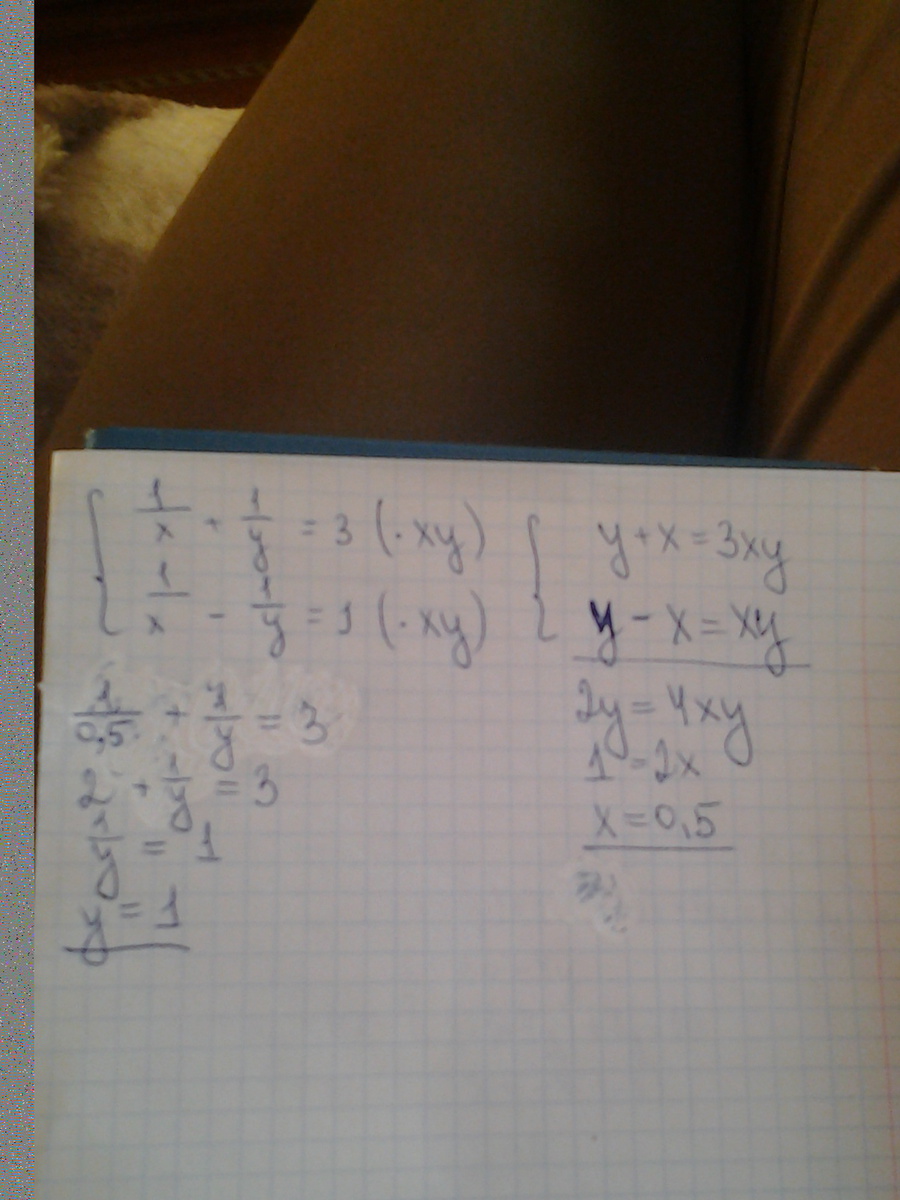 1/x + 1/y = 3 (· xy)
1/x - 1/y = 1 (· xy)
y + x = 3xy
y - x = xy
2y = 4xy
1 = 2x
x = 0,5
1/0,5 + 1/y = 3
2 + 1/y = 3
1/y = 1
y = 1